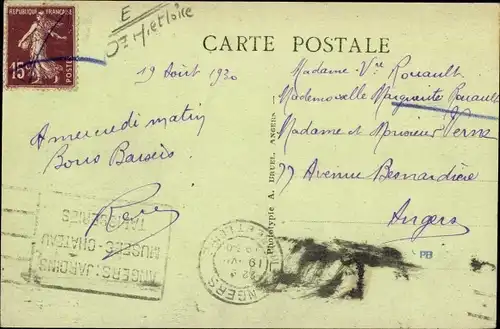 E
Dt M et Loire
REPUBLIQUE FRANÇAISE
15c
POSTES
CARTE POSTALE
19 Août 1930
A mercredi matin
Bons Baisers
Madame Vve Rouault
Mademoiselle Marguerite Rouault
Madame et Monsieur
77 Avenue Besnardière
Angers
Phototypie A. BRUEL, ANGERS
PB
ANGERS: JARDINS
MUSEES-CHATEAU
TAPISSERIES
ANGERS
19